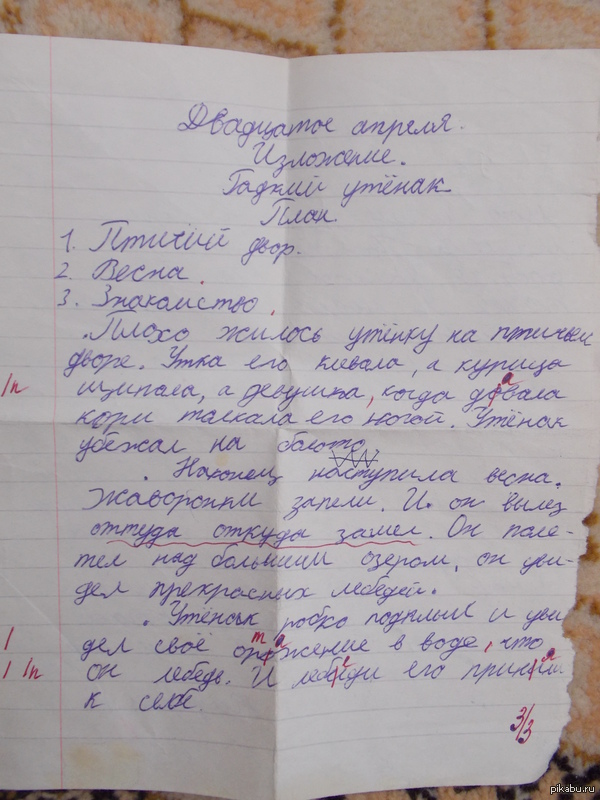 Двадцатое апреля.
Изложение.
Гадкий утёнак
План.
1. Птичий двор.
2. Весна.
3. Знакомство.
Плохо жилось утёнку на птичьем
дворе. Утка его клевала, а курица
1п щипала, а девушка, когда довала
корм талкала его ногой. Утёнак
убежал на болото
Наконец наступила весна.
Жаворонки запели. И он вылез
оттуда откуда залез. Он поле-
тел над большим озером, он уви-
дел прекрасных лебедей.
Утёнок робко подплыл и уви
1 дел своё отражение в воде, что
1 1п он лебедь. И лебеди его приняли
к себе.
3/3
pikabu.ru